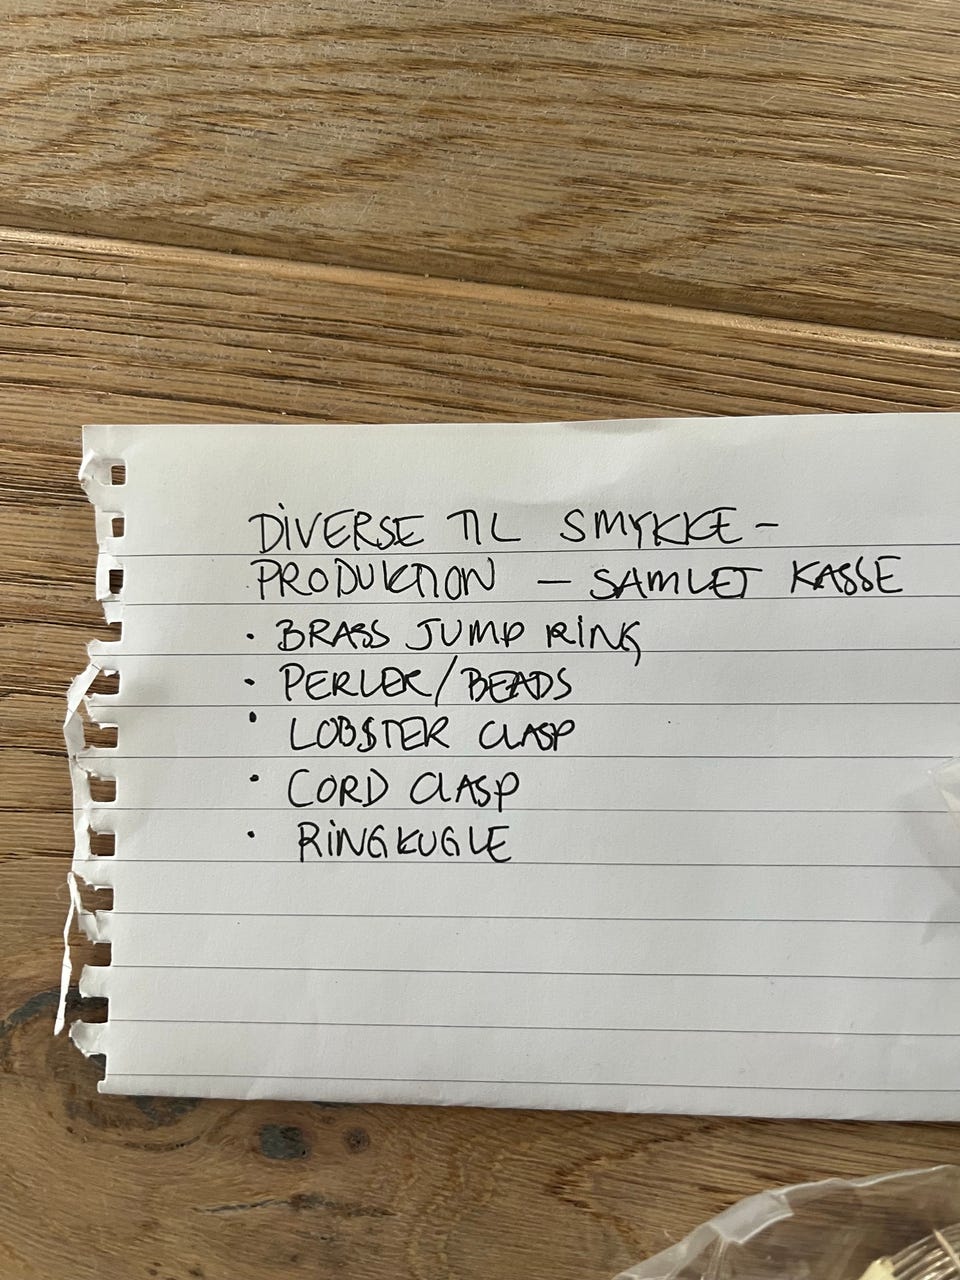 DIVERSE TIL SMYKKE-
PRODUKTION - SAMLET KASSE
• BRASS JUMP RING
• PERLER/BEADS
• LOBSTER CLASP
• CORD CLASP
• RINGKUGLE